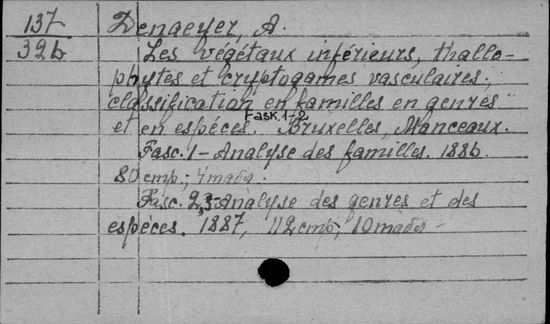 137 Denaeyer, A.
392 Les végétaux inférieurs, thallo-
phytes et cryptogames vasculaires;
classification en familles en genres
Fask. 1-2
et en espéces. Bruxelles, Manceaux.
Fasc. 1 - Analyse des familles. 1886.
80 стр.; 4 табл.
Fasc. 2,3-Analyse des genres et des
espéces. 1887, 112 стр; 10 табл -